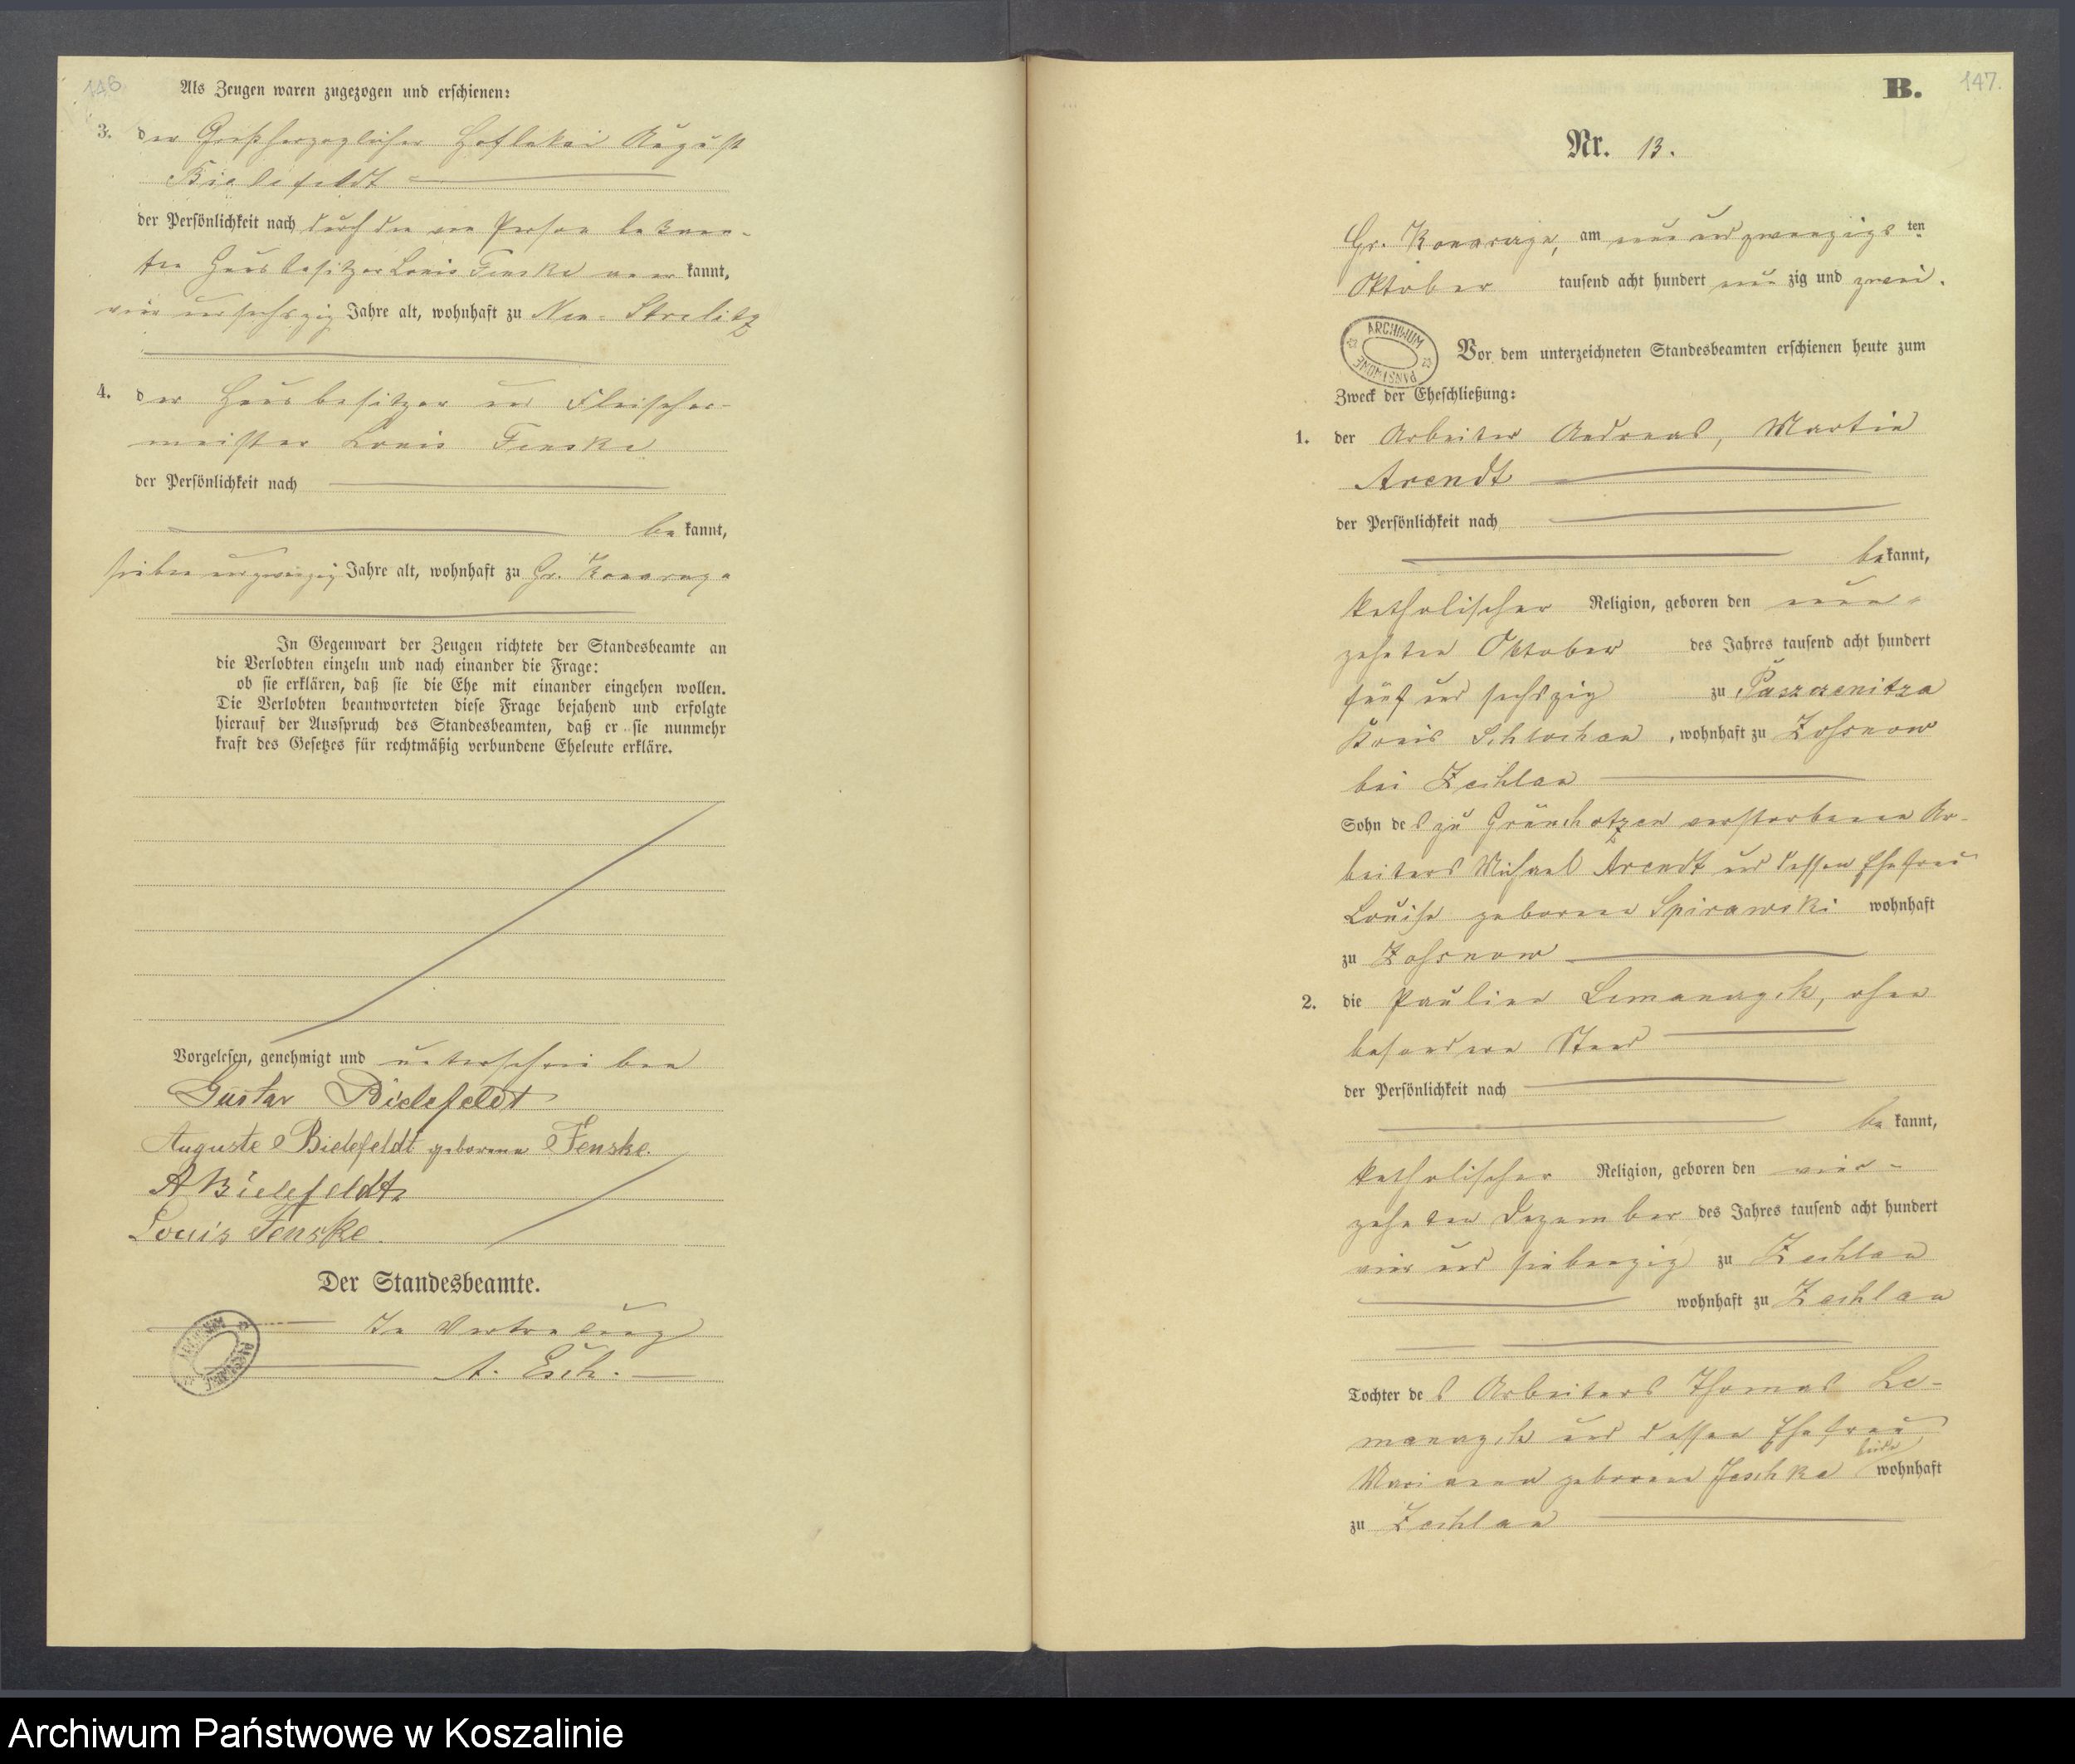 146
Als Zeugen waren zugezogen und erschienen:
3. der Großherzogliche Hoflakai August
Bielefeldt
der Persönlichkeit nach durch den von Person bekann-
ten Hausbesitzer Louis Fenske aner kannt,
vier und sechszig Jahre alt, wohnhaft zu Neu-Strelitz
4. der Hausbesitzer und Fleischer-
meister Louis Fenske
der Persönlichkeit nach
be kannt,
sieben und zwanzig Jahre alt, wohnhaft zu Gr. Konarczyn
In Gegenwart der Zeugen richtete der Standesbeamte an
die Verlobten einzeln und nach einander die Frage:
ob sie erklären, daß sie die Ehe mit einander eingehen wollen.
Die Verlobten beantworteten diese Frage bejahend und erfolgte
hierauf der Ausspruch des Standesbeamten, daß er sie nunmehr
kraft des Gesetzes für rechtmäßig verbundene Eheleute erkläre.
Vorgelesen, genehmigt und unterschrieben
Gustav Bielefeldt
Auguste Bielefeldt geborene Fenske.
A Bielefeldt
Louis Fenske.
Der Standesbeamte.
In Vertretung
A. Esch.
B. 147.
Nr. 13.
Gr. Konarczyn, am neun und zwanzigs ten
Oktober tausend acht hundert neun zig und zwei.
ARCHIWUM PAŃSTWOWE
Vor dem unterzeichneten Standesbeamten erschienen heute zum
Zweck der Eheschließung:
1. der Arbeiter Andreas, Martin
Arendt
der Persönlichkeit nach
be kannt,
katholischer Religion, geboren den neun-
zehnten Oktober des Jahres tausend acht hundert
fünf und sechszig zu Paszczenitza
Kreis Schlochau, wohnhaft zu Zossnow
bei Zechlau
Sohn des zu Grünchotzen verstorbenen Ar-
beiters Michael Arendt und dessen Ehefrau
Louise geborene Spirawski wohnhaft
zu Zossnow
2. die Pauline Lemanczyk, ohne
besonderen Stand
der Persönlichkeit nach
be kannt,
katholischer Religion, geboren den vier-
zehnten Dezember des Jahres tausend acht hundert
vier und siebenzig zu Zechlau
wohnhaft zu Zechlau
Tochter des Arbeiters Thomas Le-
manczyk und dessen Ehefrau
Marianna geborene Jeschke beide wohnhaft
zu Zechlau
Archiwum Państwowe w Koszalinie